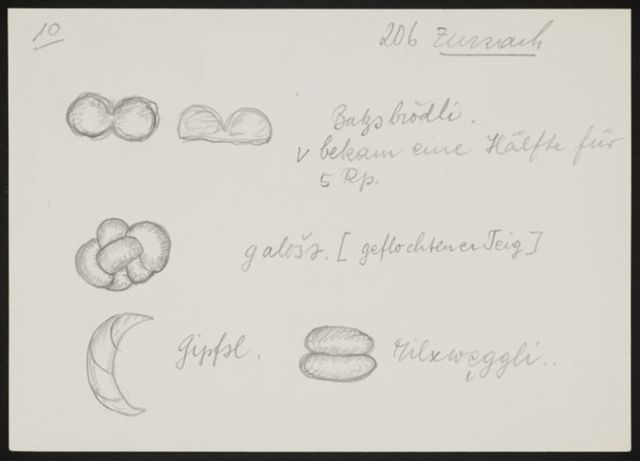 10
206 Zurzach
Batzebrödli.
v bekam eine Hälfte für
5 Rp.
galošž. [geflochtener Teig]
Gipfel.
Milxwęggli..